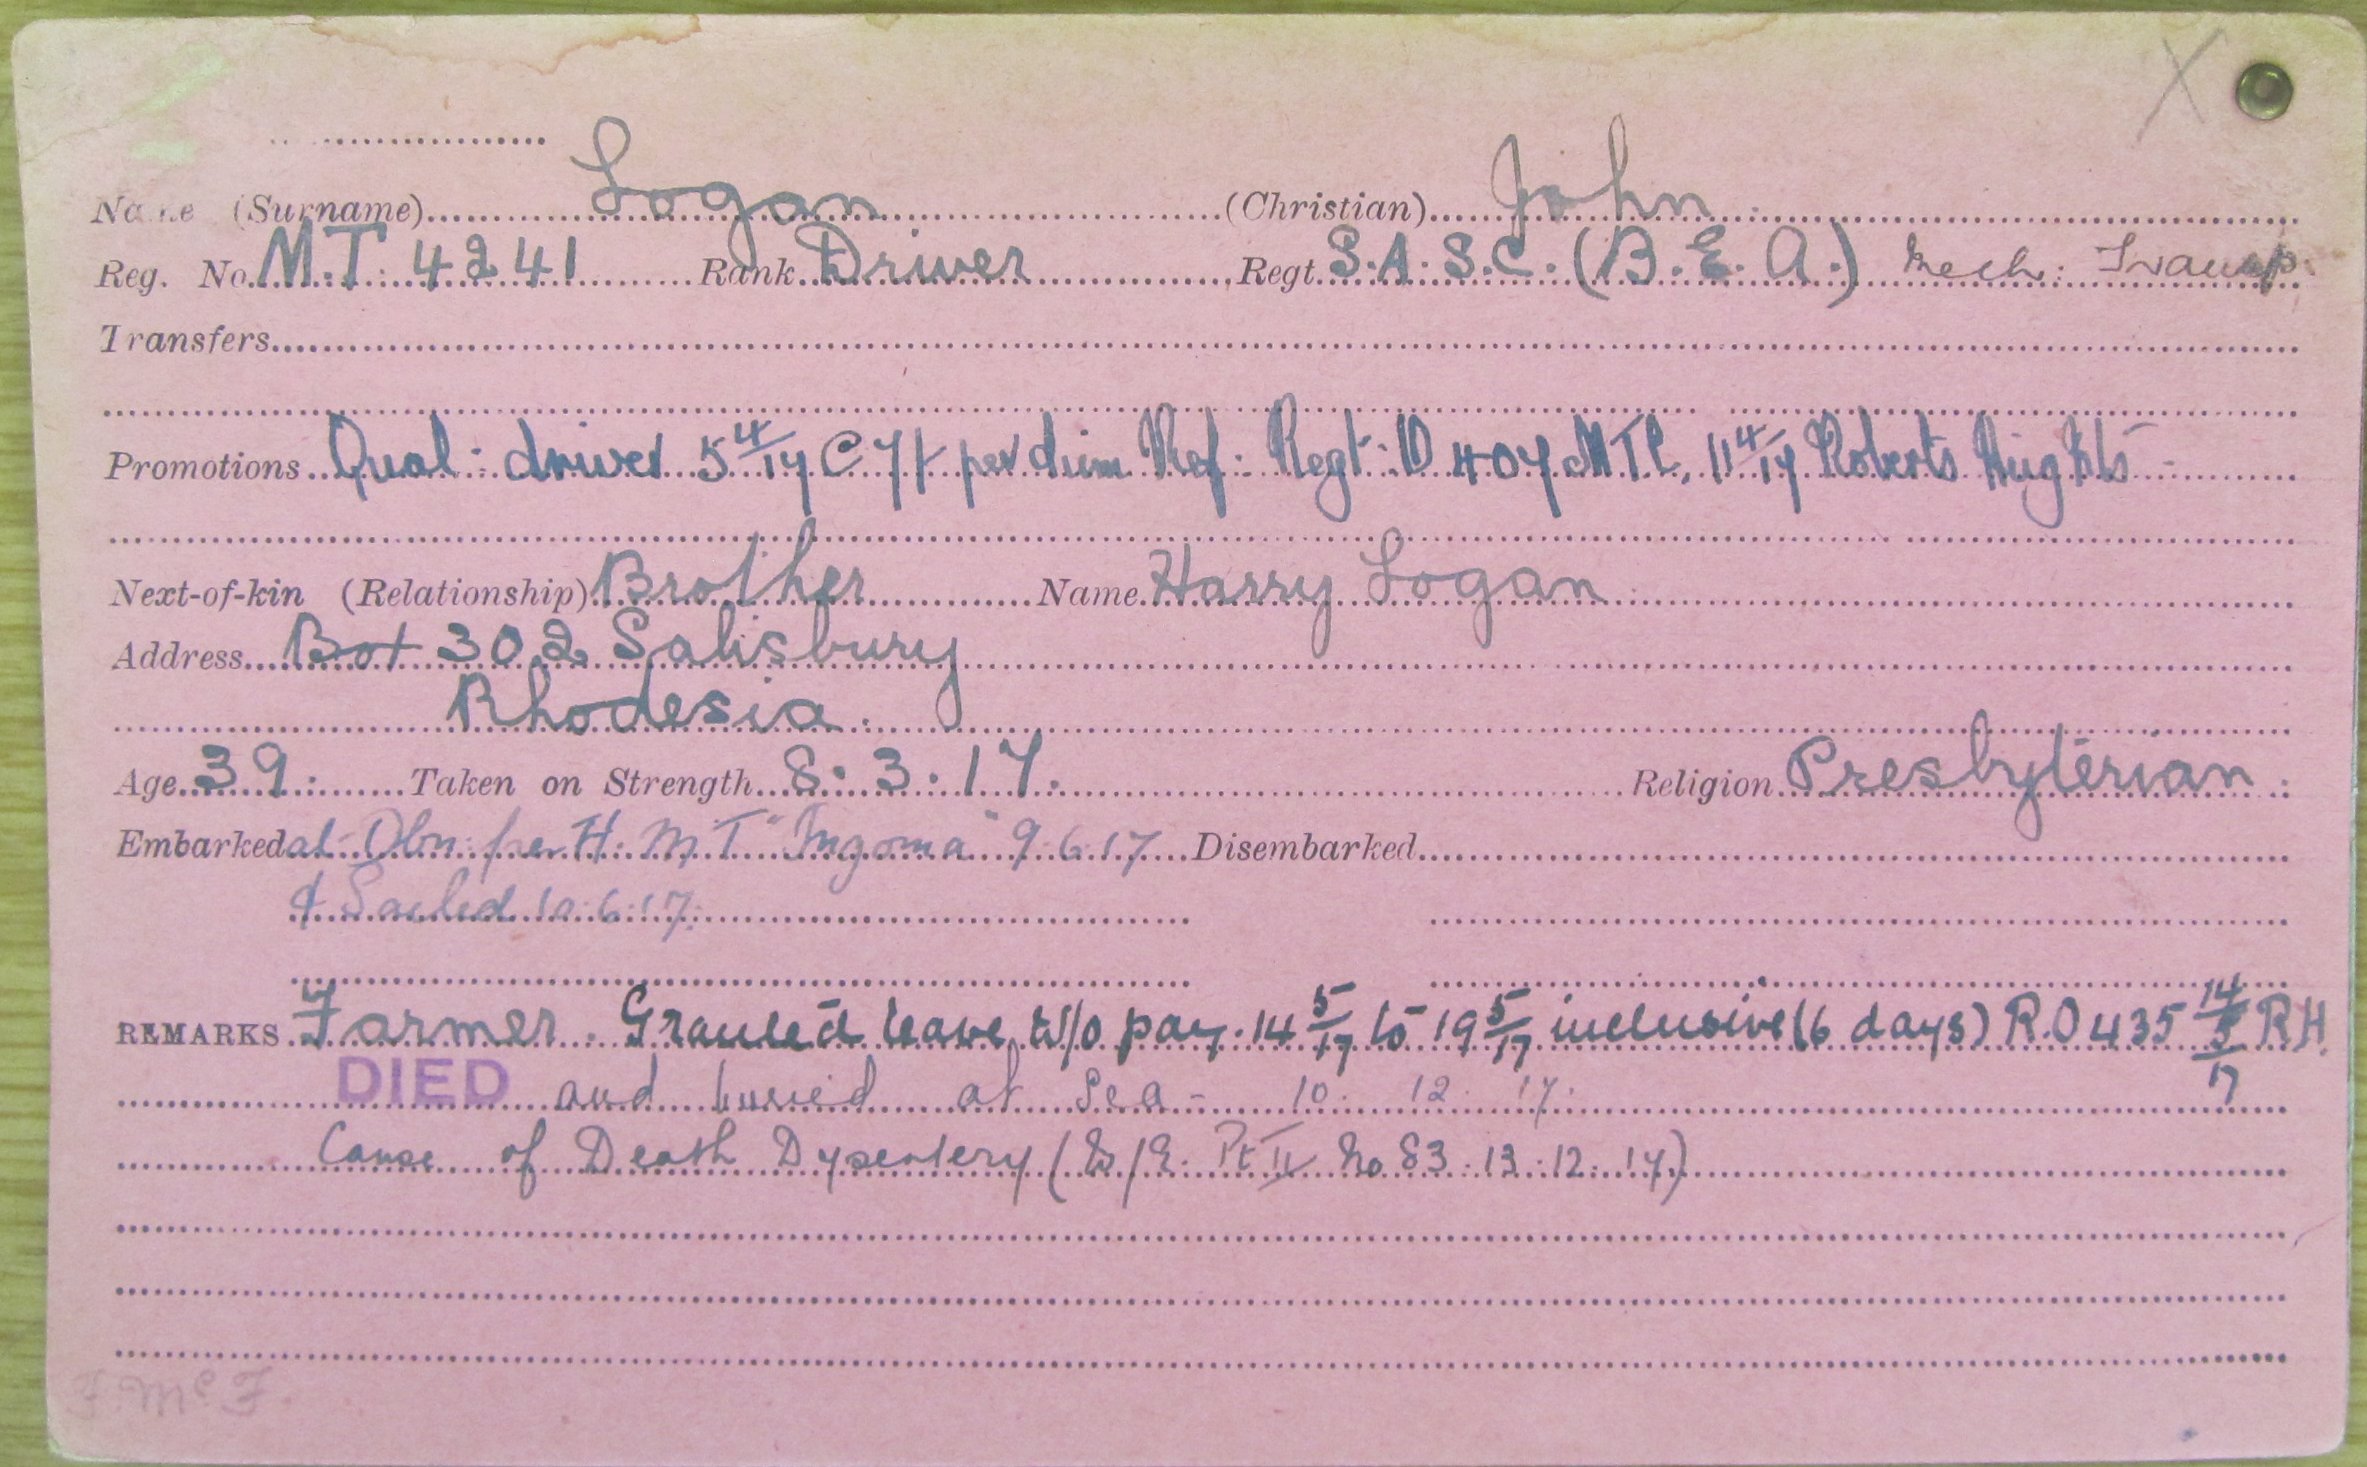 Name (Surname) Logan (Christian) John
Reg. No. M.T. 4241 Rank Driver Regt. S.A.S.C. (B.E.A.) Mech. Transp.
Transfers
Promotions Qual. driver 5 4/17 @ 7/- per diem Ref. Regt. O 407 MTC, 11 4/17 Roberts Heights
Next-of-kin (Relationship) Brother Name Harry Logan
Address Box 302 Salisbury
Rhodesia.
Age 39. Taken on Strength 8.3.17. Religion Presbyterian.
Embarked at Dbn per H.M.T "Ingoma" 9.6.17 Disembarked
& Sailed 10.6.17.
REMARKS Farmer. Granted leave W/o pay. 14 5/17 to 19 5/17 inclusive (6 days) R.O 435 14/5/17 R.H.
DIED and buried at Sea - 10. 12. 17.
Cause of Death Dysentery ( Pt II No 83. 13.12.17.)
F. McF.